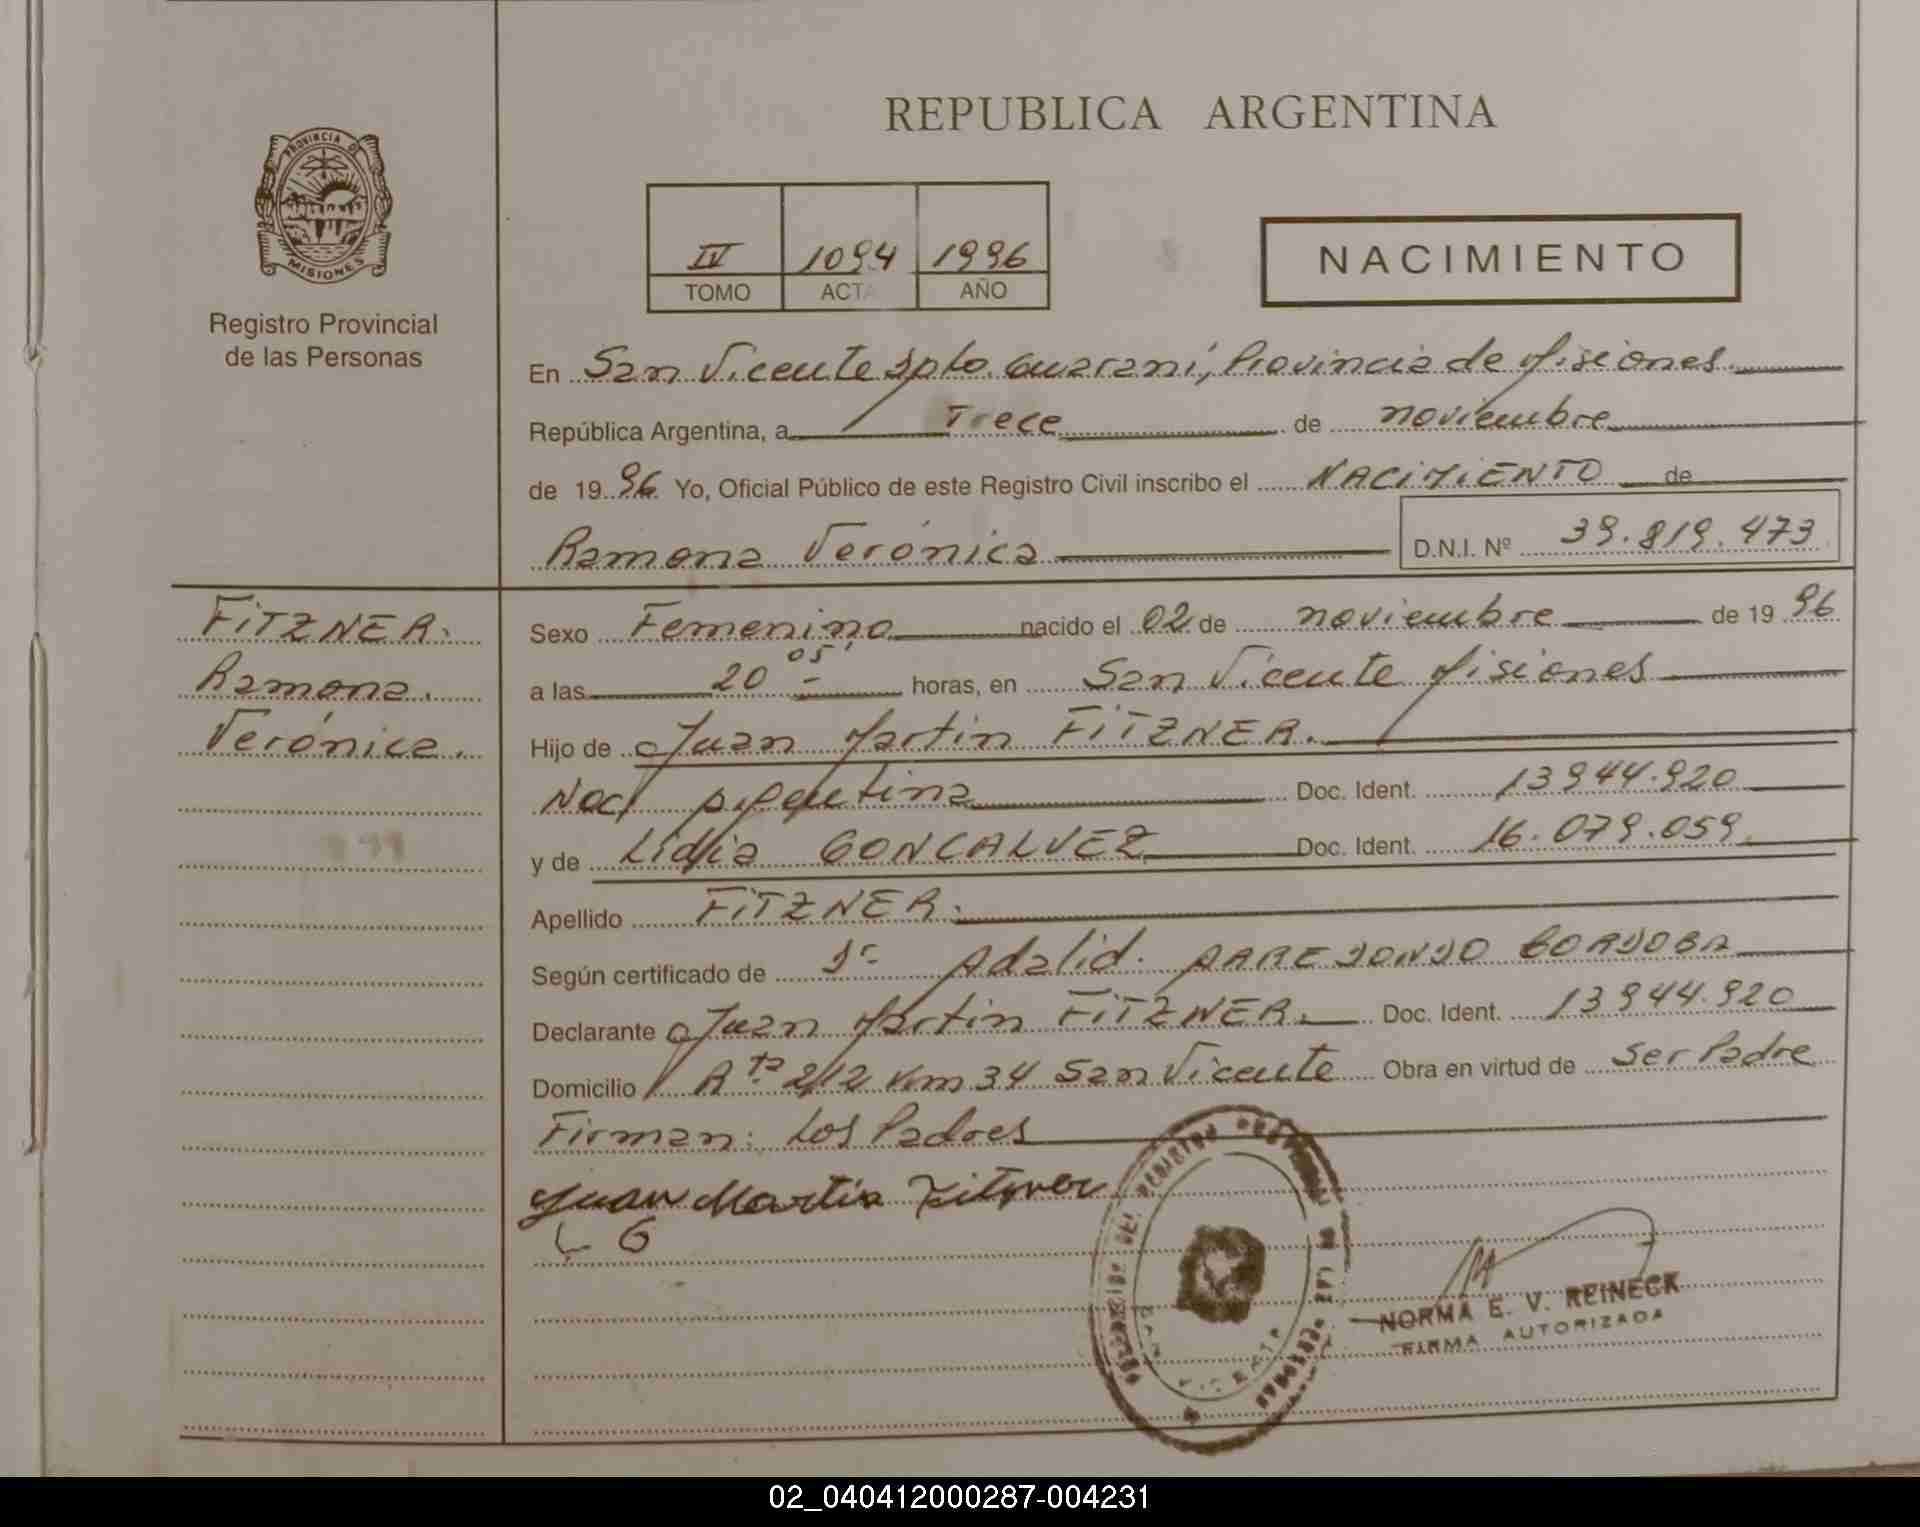 REPUBLICA ARGENTINA
PROVINCIA DE
MISIONES
Registro Provincial
de las Personas
IV 1094 1996
TOMO ACTA AÑO
NACIMIENTO
En San Vicente Dpto. Guaraní, Provincia de Misiones
República Argentina, a Trece de noviembre
de 1996 Yo, Oficial Público de este Registro Civil inscribo el NACIMIENTO de
Ramona Verónica D.N.I. Nº 39.819.473
FITZNER.
Ramona.
Verónica.
Sexo Femenino nacido el 02 de noviembre de 1996
a las 20 05' horas, en San Vicente Misiones
Hijo de Juan Martin FITZNER.
Nac/ Argentina Doc. Ident. 13944.920
y de Lidia GONCALVEZ Doc. Ident. 16.079.059
Apellido FITZNER.
Según certificado de Dr Adalid. AREDONDO CORDOBA
Declarante Juan Martin FITZNER. Doc. Ident. 13944.920
Domicilio Rta 212 Km 34 San Vicente Obra en virtud de Ser Padre
Firman: Los Padres
Juan Martin Fitzner
L G
NORMA E. V. REINECK
FIRMA AUTORIZADA
02_040412000287-004231